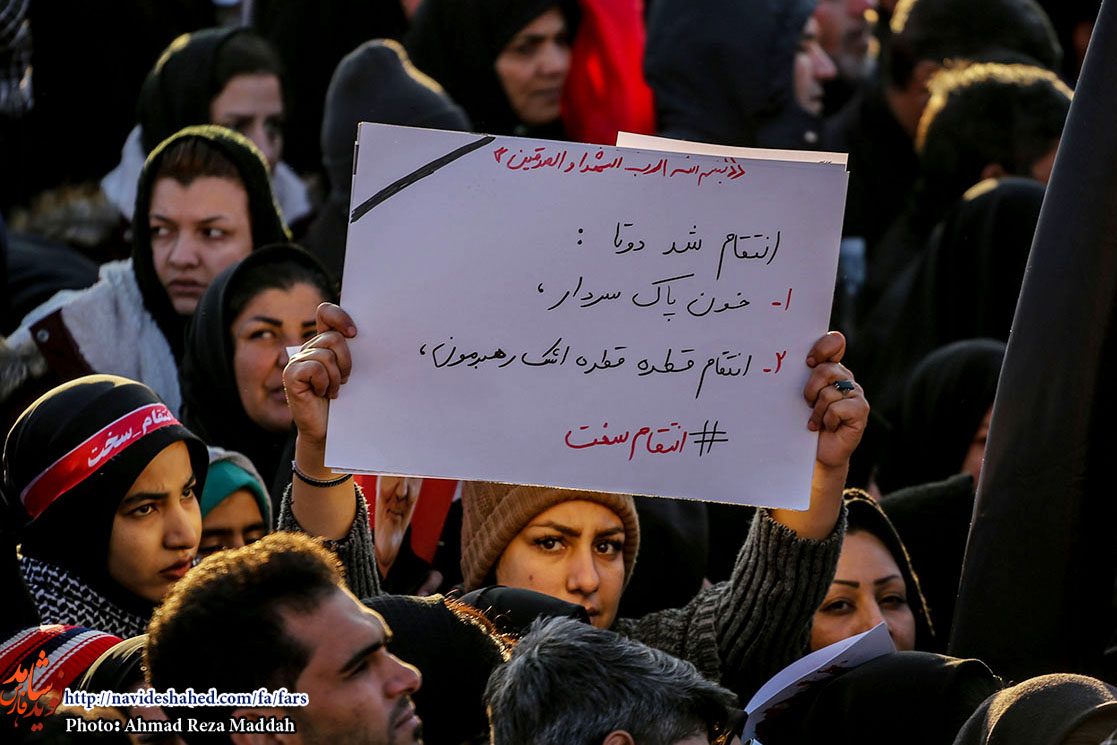 «بسم الله الرب الشهدا و الصدقین»
انتقام شد دوتا :
۱- خون پاک سردار،
۲- انتقام قطره قطره اشک رهبرمون،
#انتقام سخت
انتقام_سخت
نوید شاهد
فارس
http://navideshahed.com/fa/fars
Photo: Ahmad Reza Maddah